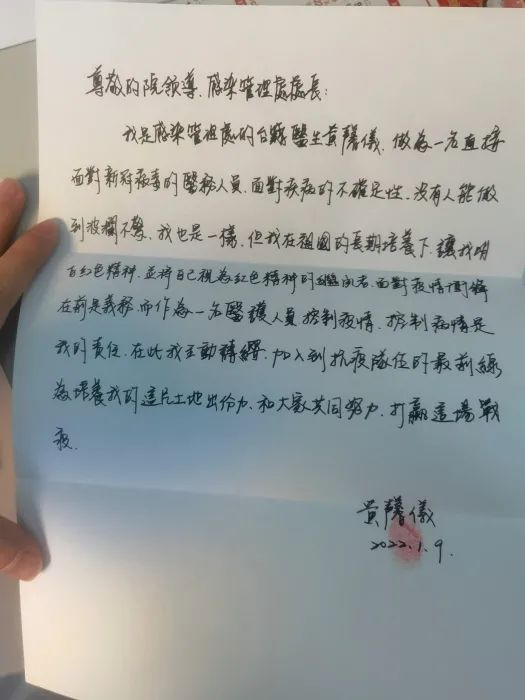 尊敬的院領導、感染管理處處長：
我是感染管理處的台籍醫生黃馨儀，做為一名直接
面對新冠病毒的醫務人員，面對疾病的不確定性，沒有人能做
到波瀾不驚，我也是一樣，但我在祖國的長期培養下，讓我明
白紅色精神，並將自己視為紅色精神的繼承者，面對疫情衝鋒
在前是義務，而作為一名醫護人員控制疫情、控制病情是
我的責任，在此我主動請纓，加入到抗疫隊伍的最前線
為培養我的這片土地出份力，和大家共同努力，打贏這場戰
疫.
黃馨儀
2022.1.9.